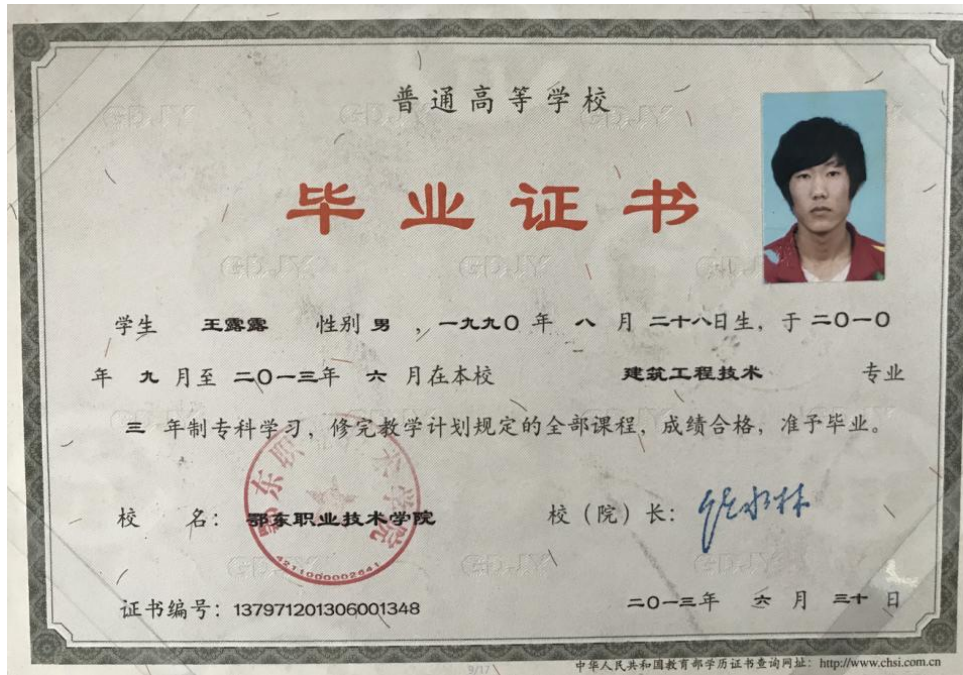 普通高等学校
毕业证书
学生 王露露 性别 男 , 一九九〇 年 八 月 二十八日生, 于 二〇一〇
年 九 月至 二〇一三年 六 月在本校 建筑工程技术 专业
三 年制专科学习, 修完教学计划规定的全部课程, 成绩合格, 准予毕业。
校 名: 鄂东职业技术学院 校(院)长:
4211000002641
证书编号: 137971201306001348 二〇一三年 六 月 三十 日
9/17
中华人民共和国教育部学历证书查询网址: http://www.chsi.com.cn